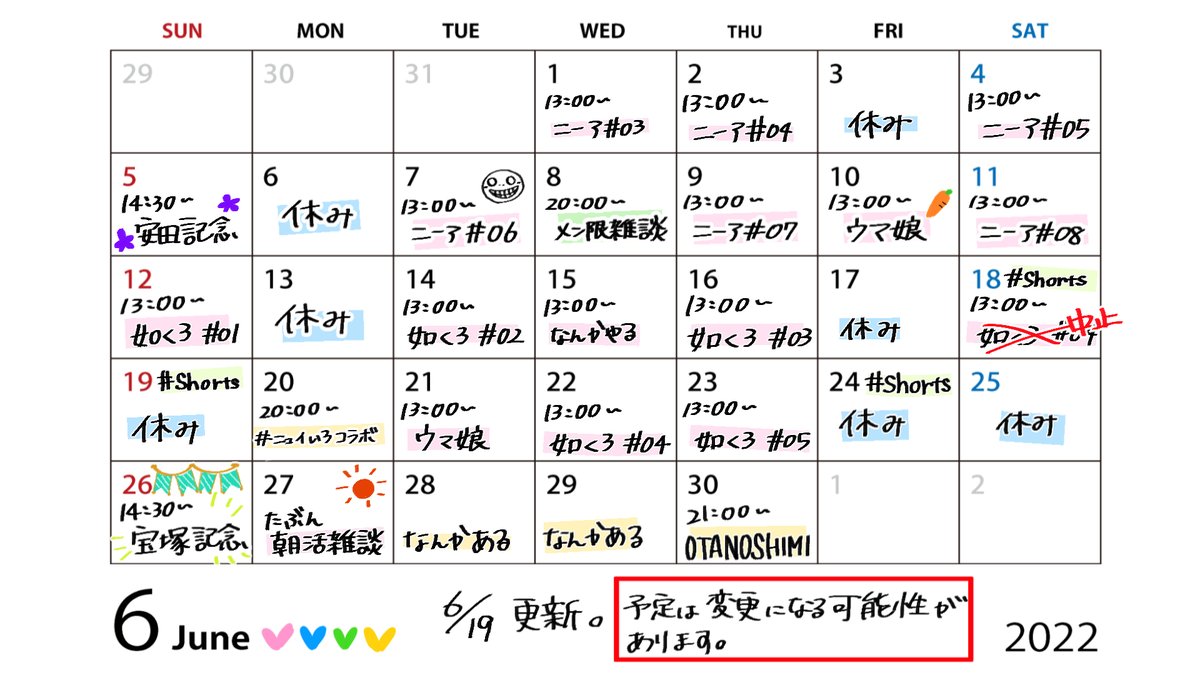 SUN MON TUE WED THU FRI SAT
29
30
31
1
13:00〜
ニーア#03
2
13:00〜
ニーア#04
3
休み
4
13:00〜
ニーア#05
5
14:30〜
安田記念
6
休み
7
13:00〜
ニーア#06
8
20:00〜
メン限雑談
9
13:00〜
ニーア#07
10
13:00〜
ウマ娘
11
13:00〜
ニーア#08
12
13:00〜
如くろ #01
13
休み
14
13:00〜
如くろ #02
15
13:00〜
なんかやる
16
13:00〜
如くろ #03
17
休み
18 #Shorts
13:00〜
如くろ #04
中止
19 #Shorts
休み
20
20:00〜
#ニュイいろコラボ
21
13:00〜
ウマ娘
22
13:00〜
如くろ #04
23
13:00〜
如くろ #05
24 #Shorts
休み
25
休み
26
14:30〜
宝塚記念
27
たぶん
朝活雑談
28
なんかある
29
なんかある
30
21:00〜
OTANOSHIMI
1
2
6 June
6/19 更新。
予定は変更になる可能性が
あります。
2022